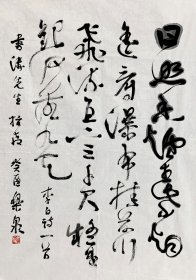 日照香爐生紫烟
遥看瀑布挂前川
飛流直下三千尺疑是
銀河落九天 李白詩一首
先生 癸酉樂泉